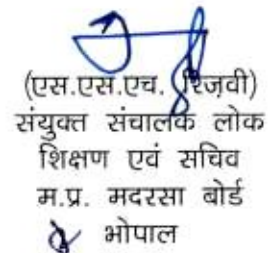 (एस.एस.एच. रिज़वी)
संयुक्त संचालक लोक
शिक्षण एवं सचिव
म.प्र. मदरसा बोर्ड
भोपाल